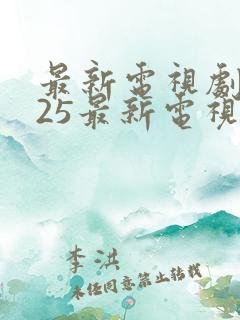 最新電視劇
25最新電視
李洪
未经同意禁止转载